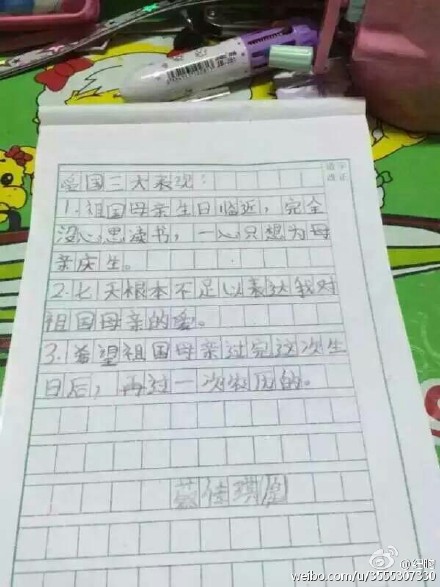 爱国三大表现：
1.祖国母亲生日临近，完全
没心思读书，一心只想为母
亲庆生。
2.七天根本不足以表达我对
祖国母亲的爱。
3.希望祖国母亲过完这次生
日后，再过一次农历的。
蔡佳琪
weibo.com/u/3555307330